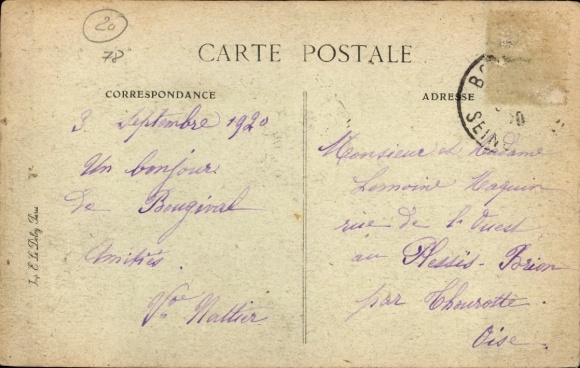 20
78
CARTE POSTALE
CORRESPONDANCE
ADRESSE
3 Septembre 1920
Un bonjour
de Bougival
Amitiés
Nattier
Monsieur et Madame
Lemoine Maquin
rue de l'Ouest
au Plessis-Brion
par Thourotte
Oise
BO
SEINE
Imp. E. Le Deley, Paris